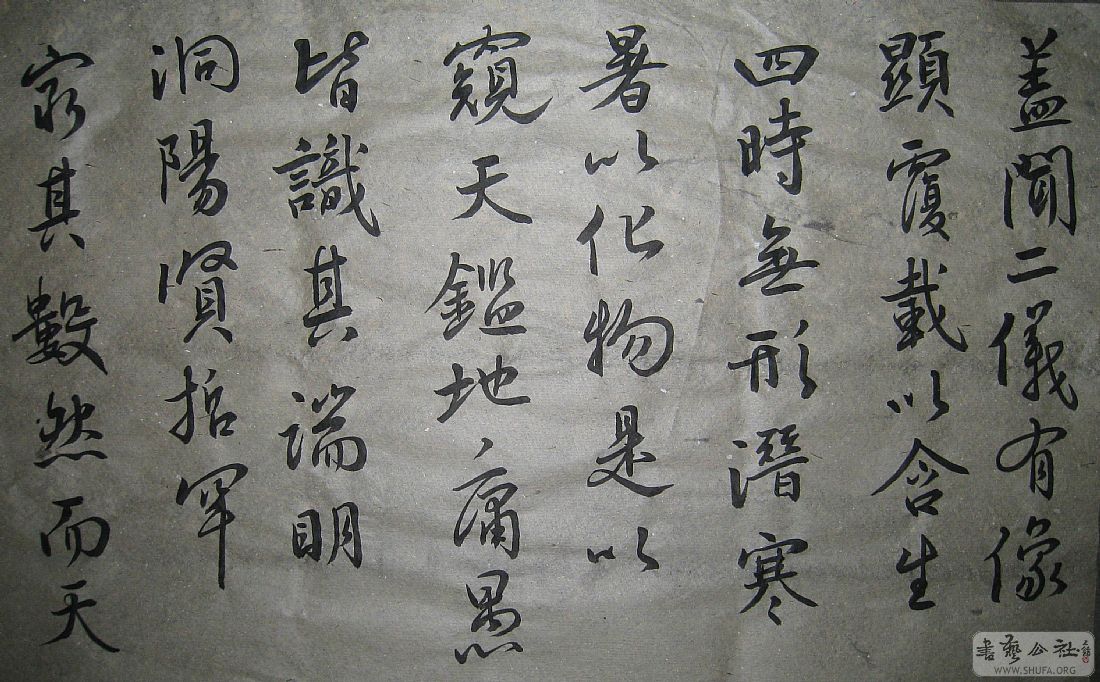 盖聞二儀有像
顯覆載以含生
四時無形潛寒
暑以化物是以
窺天鑑地庸愚
皆識其端明
洞陽賢哲罕
窮其數然而天
書藝公社
WWW.SHUFA.ORG